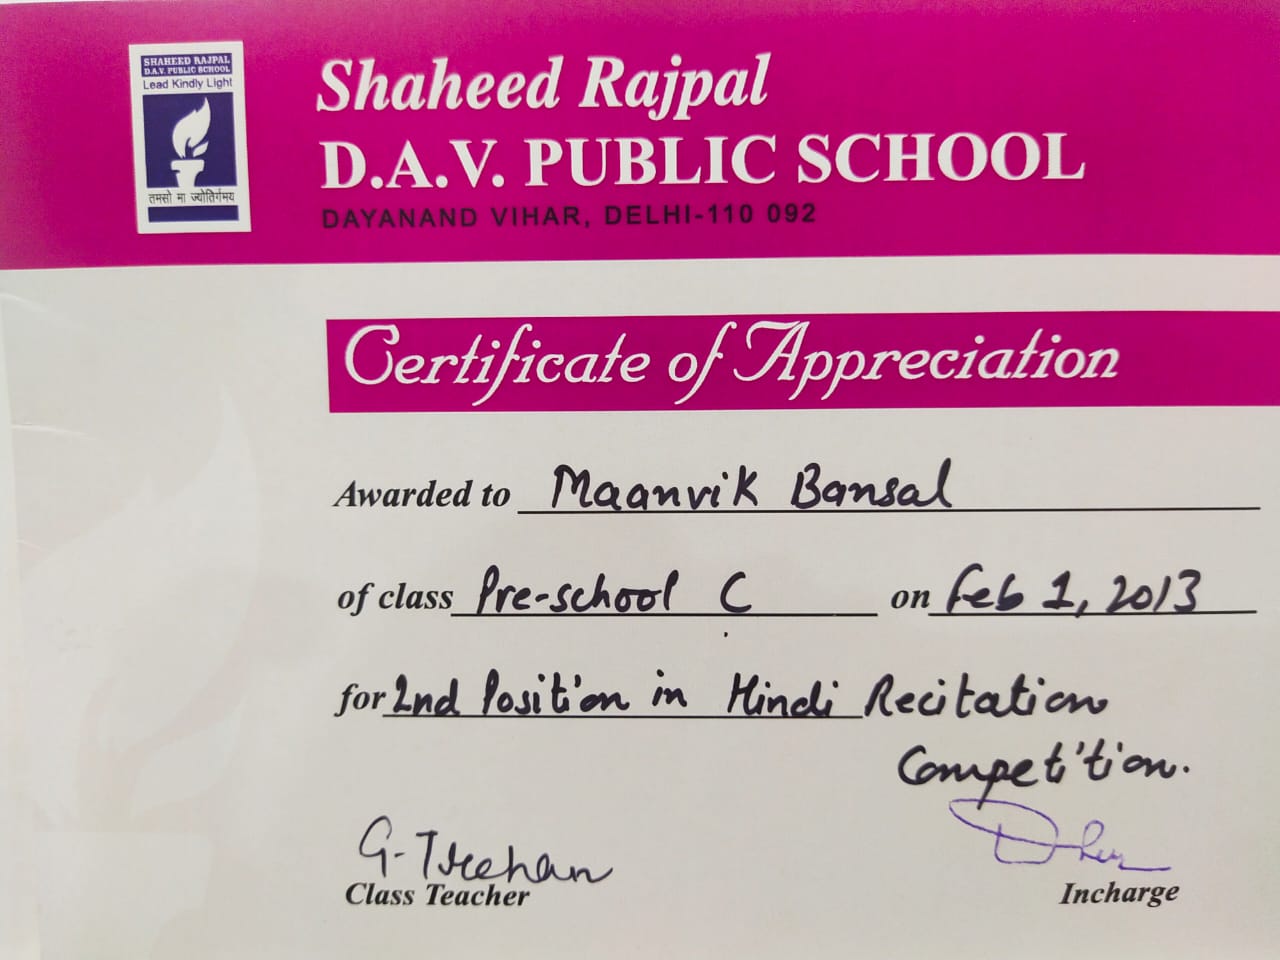 SHAHEED RAJPAL
D.A.V. PUBLIC SCHOOL
Lead Kindly Light
तमसो मा ज्योतिर्गमय
Shaheed Rajpal
D.A.V. PUBLIC SCHOOL
DAYANAND VIHAR, DELHI-110 092
Certificate of Appreciation
Awarded to Maanvik Bansal
of class Pre-school C on Feb 1, 2013
for 2nd Position in Hindi Recitation
Competition.
G. Treehan
Class Teacher
Incharge